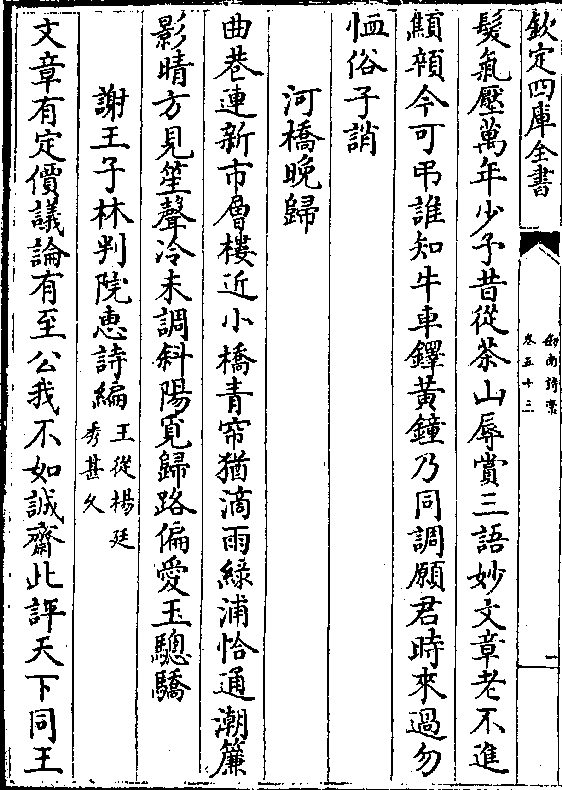 欽定四庫全書
劍南詩稾
卷五十三
一
髮氣壓萬年少予昔從茶山辱賞三語妙文章老不進
顦顇今可弔誰知牛車鐸黃鐘乃同調願君時來過勿
恤俗子誚
河橋晚歸
曲巷連新市層樓近小橋青帘猶滴雨綠浦恰通潮簾
影晴方見笙聲冷未調斜陽覓歸路偏愛玉驄驕
謝王子林判院惠詩編王從楊廷
秀甚久
文章有定價議論有至公我不如誠齋此評天下同王